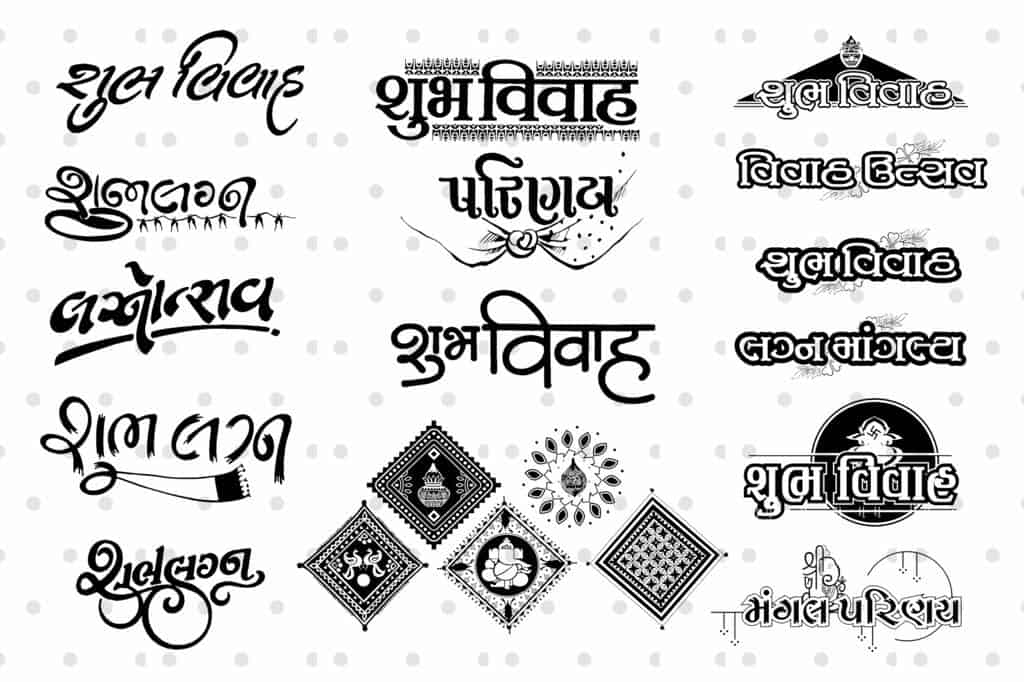 શુભ વિવાહ
શુભલગ્ન
લગ્નોત્સવ
શુભ લગ્ન
શુભલગ્ન
शुभ विवाह
પરિણય
शुभ विवाह
શુભ વિવાહ
વિવાહ ઉત્સવ
શુભ વિવાહ
લગ્ન માંગલ્ય
શુભ વિવાહ
શ્રી
મંગલ-પરિણય